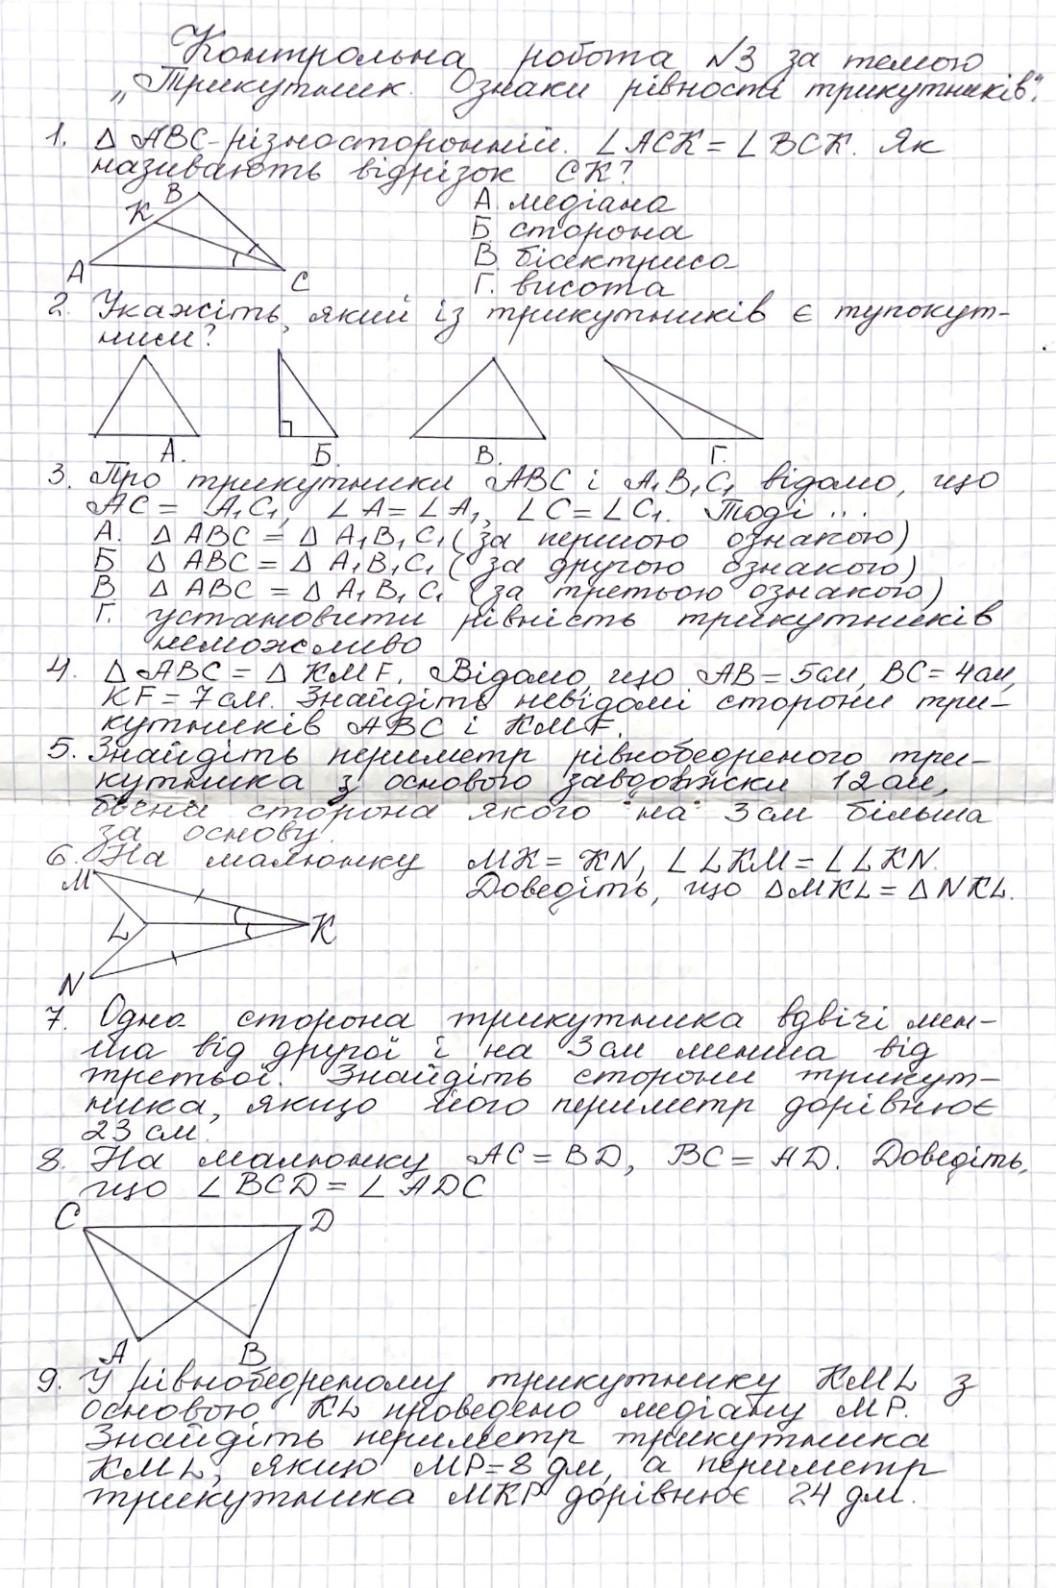 Контрольна робота №3 за темою
„Трикутник. Ознаки рівності трикутників".
1. Δ ABC - різносторонній. ∠ACK = ∠BCK. Як
називають відрізок CK?
B
K
A
C
А. медіана
Б сторона
В. бісектриса
Г. висота
2. Укажіть, який із трикутників є тупокут-
ним?
А. Б. В. Г.
3. Про трикутники ABC і A₁B₁C₁ відомо, що
AC = A₁C₁, ∠A = ∠A₁, ∠C = ∠C₁. Тоді ...
А. Δ ABC = Δ A₁B₁C₁ (за першою ознакою)
Б Δ ABC = Δ A₁B₁C₁ (за другою ознакою)
В Δ ABC = Δ A₁B₁C₁ (за третьою ознакою)
Г. установити рівність трикутників
неможливо
4. Δ ABC = Δ KMF. Відомо, що AB = 5см, BC = 4см,
KF = 7см. Знайдіть невідомі сторони три-
кутників ABC і KMF.
5. Знайдіть периметр рівнобедреного три-
кутника з основою завдовжки 12см,
бічна сторона якого на 3см більша
за основу.
6. На малюнку MK = KN, ∠LKM = ∠LKN.
Доведіть, що ΔMKL = ΔNKL.
M
L
K
N
7. Одна сторона трикутника вдвічі мен-
ша від другої і на 3см менша від
третьої. Знайдіть сторони трикут-
ника, якщо його периметр дорівнює
23 см.
8. На малюнку AC = BD, BC = AD. Доведіть,
що ∠BCD = ∠ADC
C D
A B
9. У рівнобедреному трикутнику KML з
основою KL проведено медіану MP.
Знайдіть периметр трикутника
KML, якщо MP=8 дм, а периметр
трикутника MKP дорівнює 24 дм.